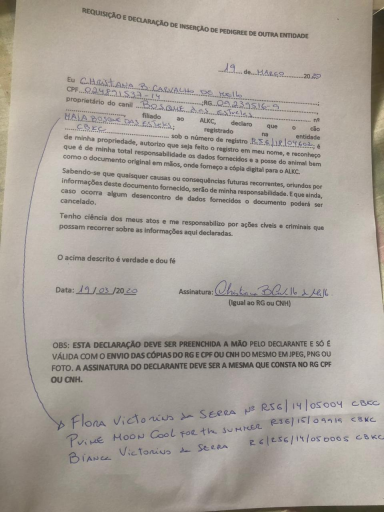 REQUISIÇÃO E DECLARAÇÃO DE INSERÇÃO DE PEDIGREE DE OUTRA ENTIDADE
19 de MARÇO 2020
Eu CHRISTIANA B. CARVALHO DE
CPF ;RG
proprietário do canil BOSQUE DAS ESTRELAS nº
filiado ao ALKC, declaro que o cão
MAIA BOSQUE DAS ESTRELAS; registrado na entidade
CBKC sob o número de registro
de minha propriedade, autorizo que seja feito o registro em meu nome, e reconheço
que é de minha total responsabilidade os dados fornecidos e a posse do animal bem
como o documento original em mãos, onde forneço a cópia digital para o ALKC.
Sabendo-se que quaisquer causas ou consequências futuras recorrentes, oriundos por
informações deste documento fornecido, serão de minha responsabilidade. E que ainda,
caso ocorra algum desencontro de dados fornecidos o documento poderá ser
cancelado.
Tenho ciência dos meus atos e me responsabilizo por ações cíveis e criminais que
possam recorrer sobre as informações aqui declaradas.
O acima descrito é verdade e dou fé
Data: 19/03/2020 Assinatura:
(Igual ao RG ou CNH)
OBS: ESTA DECLARAÇÃO DEVE SER PREENCHIDA A MÃO PELO DECLARANTE E SÓ É
VÁLIDA COM O ENVIO DAS CÓPIAS DO RG E CPF OU CNH DO MESMO EM JPEG, PNG OU
FOTO. A ASSINATURA DO DECLARANTE DEVE SER A MESMA QUE CONSTA NO RG CPF
OU CNH.
FLORA VICTORIUS DA SERRA Nº RSG/14/05004 CBKC
MOON COOL FOR THE SUMMER CBKC
BIANCA VICTORIUS DA SERRA CBKC